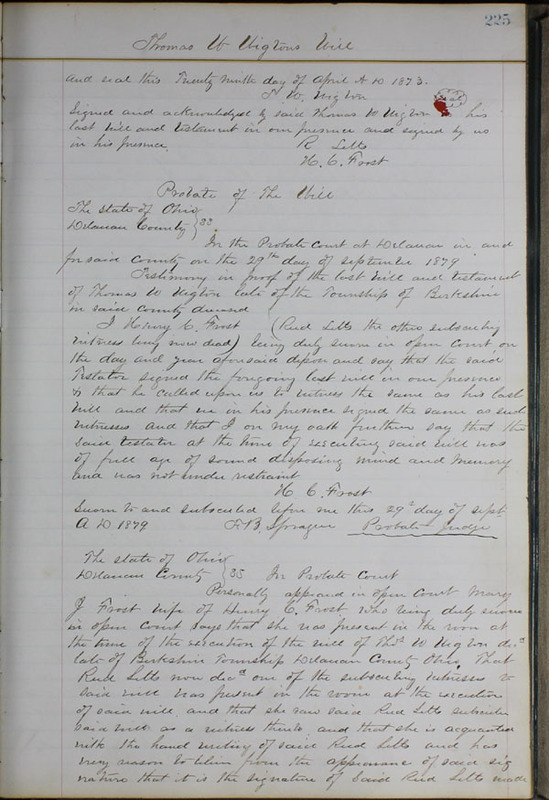 225
Thomas W Wigtons Will
and seal this Twenty Ninth day of April A D 1873.
T. W. Wigton Seal
Signed and acknowledged by said Thomas W Wigton as his
last Will and Testament in our presence and signed by us
in his presence
R Letts
H. C. Frost
Probate of The Will
The State of Ohio
Delaware County } SS
In the Probate Court at Delaware in and
for said County on the 29th day of September 1879
Testimony in proof of the last Will and testament
of Thomas W Wigton late of the Township of Berkshire
in said County deceased
I Henry C. Frost (Rued Letts the other subscribing
witness being now dead) being duly sworn in open Court on
the day and year aforesaid depose and say that the said
Testator signed the foregoing last will in our presence
& that he called upon us to witness the same as his last
Will and that we in his presence signed the same as such
Witnesses and that I on my oath further say that the
said testator at the time of executing said will was
of full age of sound disposing mind and memory
and was not under restraint
H. C Frost
Sworn to and subscribed before me this 29th day of Sept
A D 1879 F. B. Sprague Probate Judge
The State of Ohio
Delaware County } SS In Probate Court
Personally appeared in open Court Mary
J Frost wife of Henry C. Frost who being duly sworn
in open Court says that she was present in the room at
the time of the execution of the will of Thos W Wigton decd
late of Berkshire Township Delaware County Ohio, That
Rued Letts now decd one of the subscribing witnesses to
said will was present in the room at the execution
of said will and that she saw said Rued Letts subscribe
said will as a witness thereto and that she is acquainted
with the hand writing of said Rued Letts and has
every reason to believe from the appearance of said sig
nature that it is the signature of said Rued Letts made